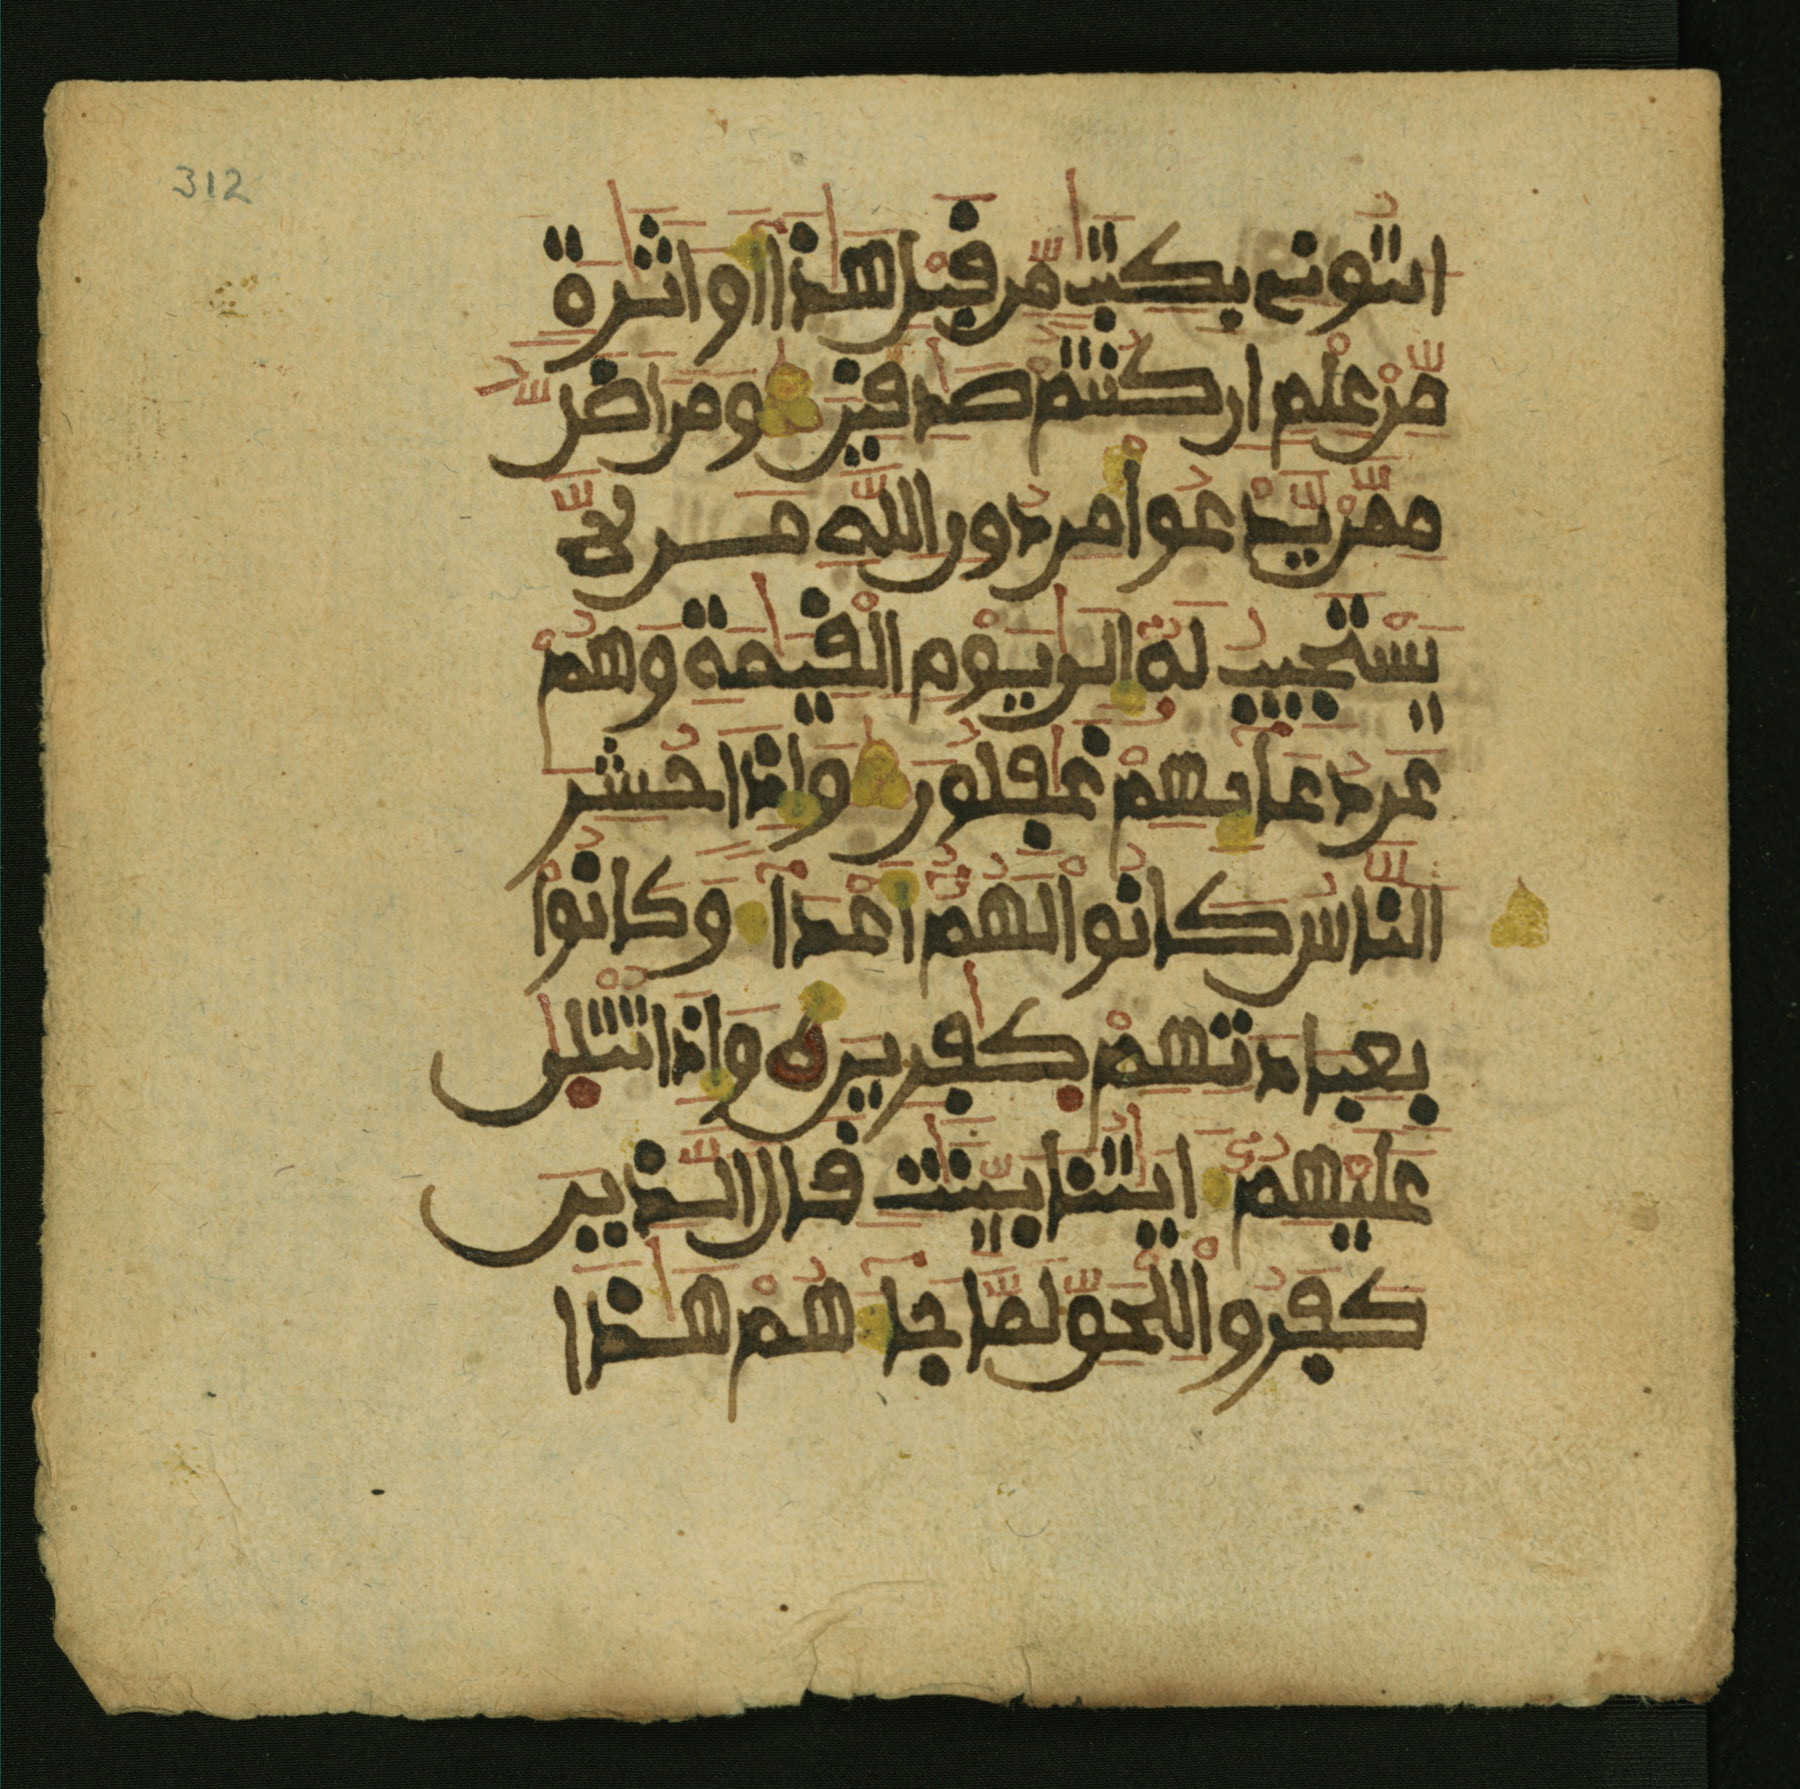 312
ايتوني بكتب من قبل هذا او اثرة
من علم ان كنتم صدقين ومن اضل
ممن يدعوا من دون الله من لا
يستجيب له الى يوم القيمة وهم
عن دعايهم غفلون واذا حشر
الناس كانوا لهم اعدا وكانوا
بعبادتهم كفرين واذا تتلى
عليهم ايتنا بينت قال الذين
كفروا للحق لما جاهم هذا